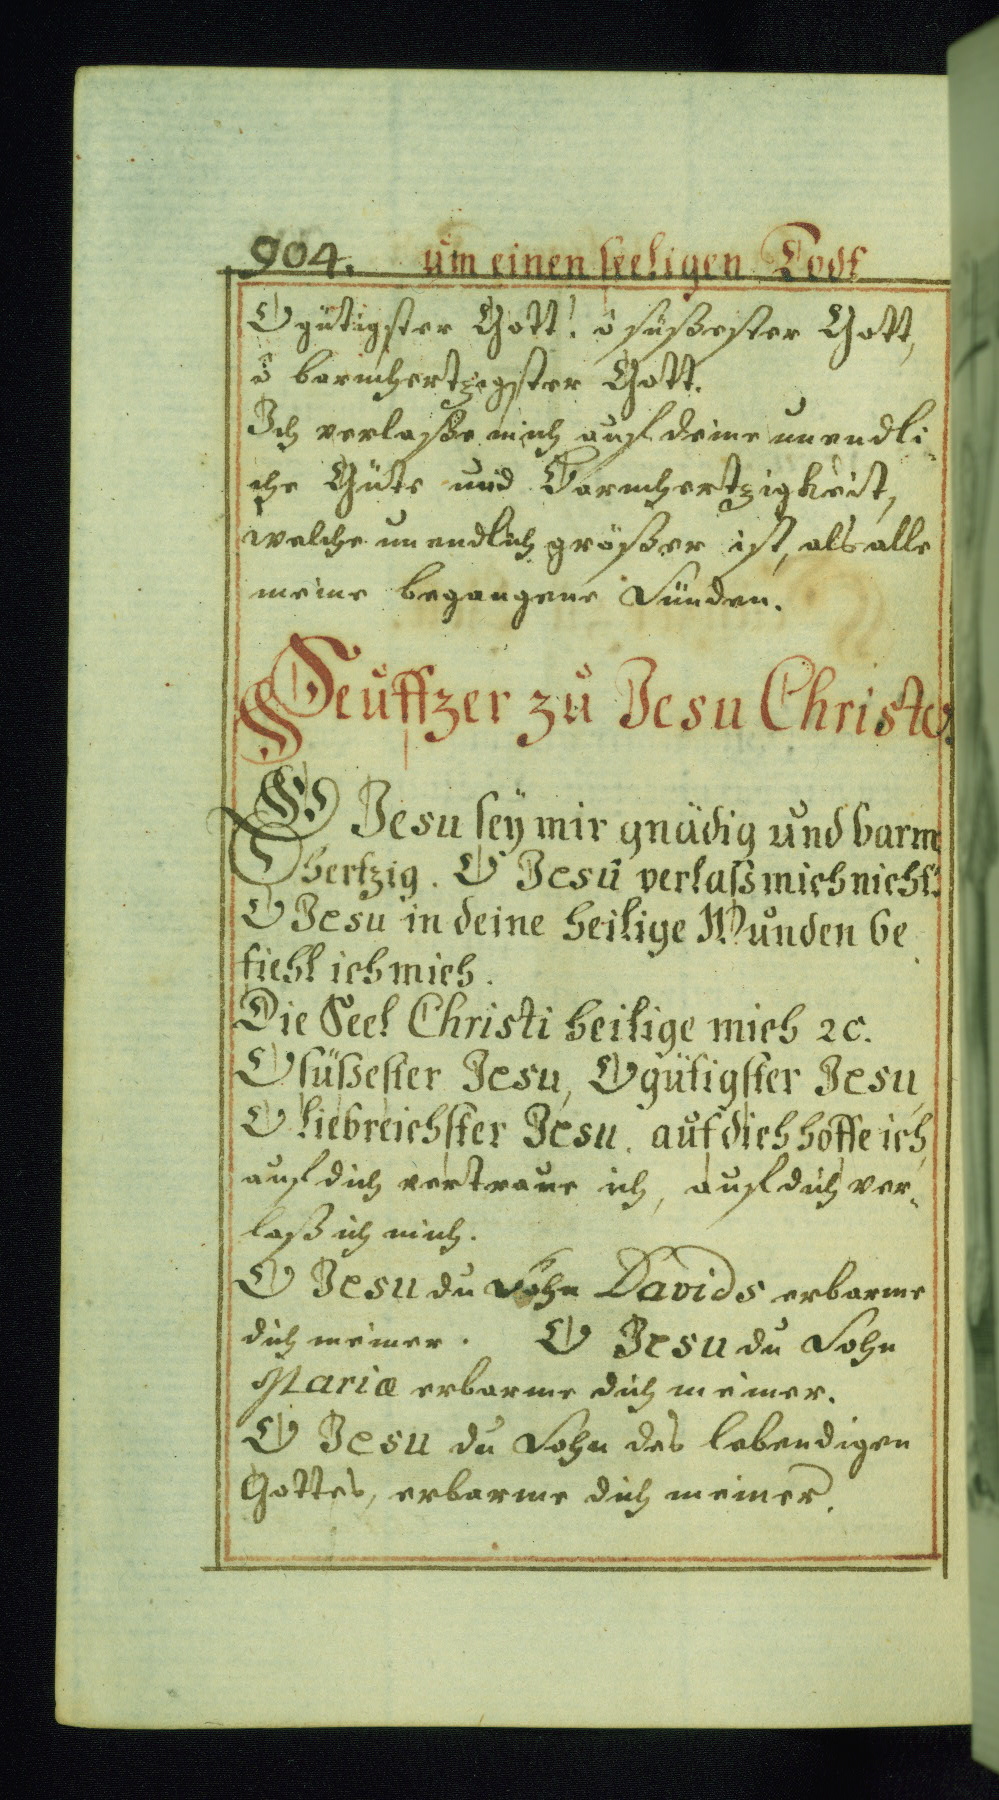 904. um einen seeligen Todt
O gütigster Gott! ô süßester Gott,
ô barmhertzigster Gott.
Ich verlaße mich auf deine unendli-
che Güte und Barmhertzigkeit,
welche unendlich größer ist, als alle
meine begangene Sünden.
Seuffzer zu Jesu Christo.
O Jesu sey mir gnädig und barm
hertzig. O Jesu verlaß mich nicht.
O Jesu in deine heilige Wunden be
fiehl ich mich.
Die Seel Christi heilige mich ꝛc.
O süßester Jesu, O gütigster Jesu,
O liebreichster Jesu. auf dich hoffe ich,
auf dich vertraue ich, auf dich ver-
laß ich mich.
O Jesu du Sohn Davids erbarme
dich meiner. O Jesu du Sohn
Mariæ erbarme dich meiner.
O Jesu du Sohn des lebendigen
Gottes, erbarme dich meiner.